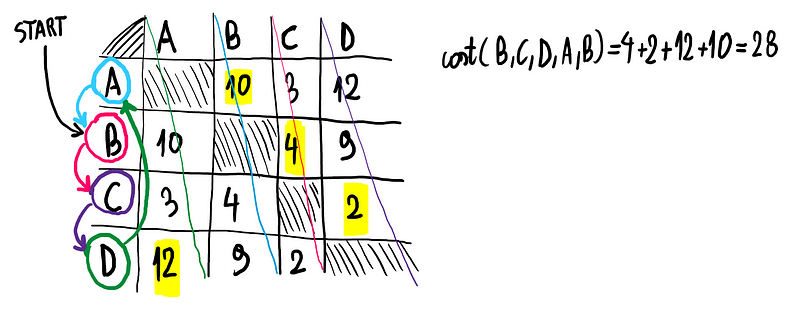 START
A B C D
A 10 3 12
B 10 4 9
C 3 4 2
D 12 9 2
cost(B,C,D,A,B)=4+2+12+10=28